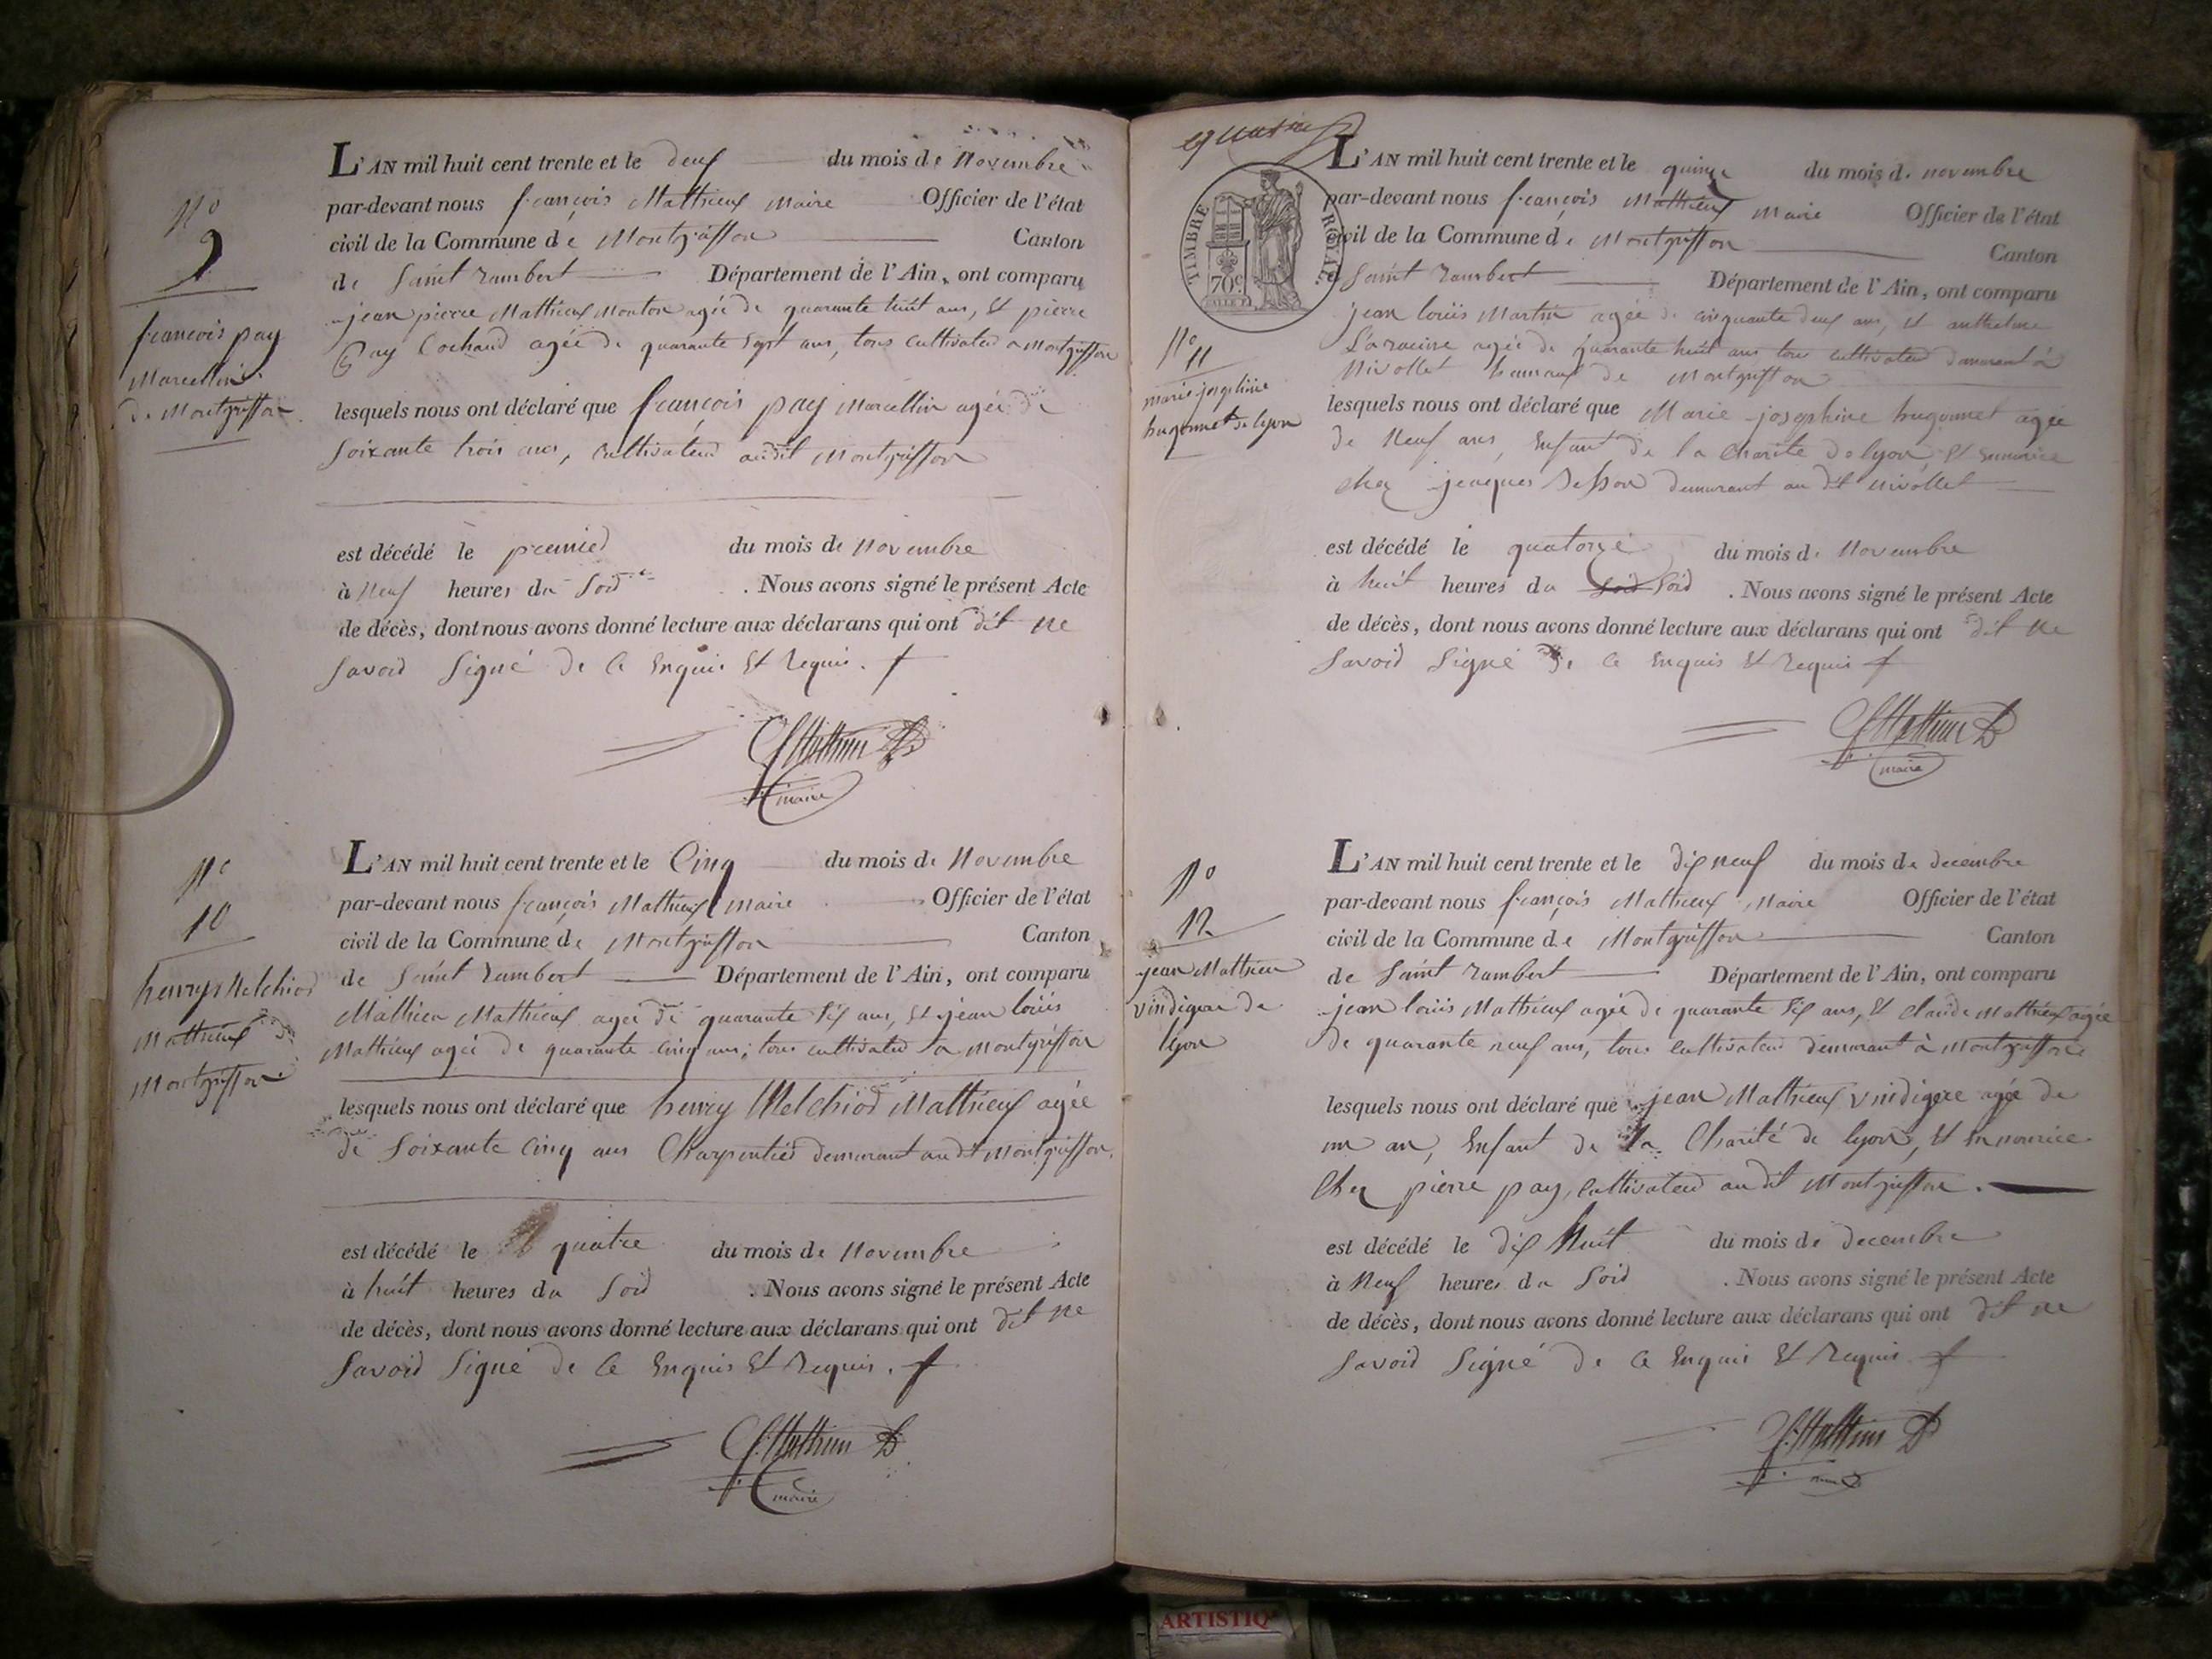 N°
9
françois pay
Marcellin
de Montgriffon
L'AN mil huit cent trente et le deux du mois de Novembre
par-devant nous françois Mathieux Maire Officier de l'état
civil de la Commune de Montgriffon Canton
de Saint Rambert Département de l'Ain, ont comparu
jean pierre Mathieux Monton agée de quarante huit ans, Et pierre
Pay Cochand agée de quarante sept ans, tous Cultivateur a Montgriffon
lesquels nous ont déclaré que françois pay Marcellin agée de
soixante trois ans, Cultivateur audit Montgriffon
est décédé le premier du mois de Novembre
à Neuf heures du Soir . Nous avons signé le présent Acte
de décès, dont nous avons donné lecture aux déclarans qui ont dit ne
Savoir Signé de Ce Enquis Et Requis.
f Mathieu
maire
N°
10
henry Melchior
Mathieux de
Montgriffon
L'AN mil huit cent trente et le Cinq du mois de Novembre
par-devant nous françois Mathieux Maire Officier de l'état
civil de la Commune de Montgriffon Canton
de Saint Rambert Département de l'Ain, ont comparu
Mathieu Mathieux agée de quarante Six ans, Et jean louis
Mathieux agée de quarante Cinq ans, tous cultivateur a Montgriffon
lesquels nous ont déclaré que henry Melchior Mathieux agée
de Soixante Cinq ans Charpentier demeurant audit Montgriffon.
est décédé le quatre du mois de Novembre
à huit heures du Soir . Nous avons signé le présent Acte
de décès, dont nous avons donné lecture aux déclarans qui ont dit ne
Savoir Signé de Ce Enquis Et Requis.
f. Mathieu
maire
TIMBRE ROYAL.
70c.
N°
11
marie josephine
hugonnet de lyon
L'AN mil huit cent trente et le quinze du mois de novembre
par-devant nous françois Mathieux Maire Officier de l'état
civil de la Commune de Montgriffon Canton
de Saint Rambert Département de l'Ain, ont comparu
jean louis Martin agée de cinquante deux ans, Et anthelme
Laracine agée de quarante huit ans tous cultivateur demeurant à
Nivollet hameaux de Montgriffon
lesquels nous ont déclaré que Marie josephine hugonnet agée
de Neuf ans, Enfant de la Charité de lyon, Et Ennourice
chez jacques demeurant au dit nivollet
est décédé le quatorze du mois de Novembre
à huit heures du Soir Soir . Nous avons signé le présent Acte
de décès, dont nous avons donné lecture aux déclarans qui ont dit ne
Savoir Signé De Ce Enquis Et Requis
f Mathieu
maire
N°
12
jean Mathieu
vindigire de
lyon
L'AN mil huit cent trente et le dix neuf du mois de decembre
par-devant nous françois Mathieux Maire Officier de l'état
civil de la Commune de Montgriffon Canton
de Saint Rambert Département de l'Ain, ont comparu
jean louis Mathieux agée de quarante Six ans, Et claude Mathieux agée
de quarante neuf ans, tous Cultivateur demeurant à Montgriffon
lesquels nous ont déclaré que jean Mathieux vindigire agée de
un an, Enfant de la Charité de lyon, Et En nourice
Chez pierre pay, Cultivateur audit Montgriffon.
est décédé le dix huit du mois de decembre
à Neuf heures du Soir . Nous avons signé le présent Acte
de décès, dont nous avons donné lecture aux déclarans qui ont dit ne
Savoir Signé De Ce Enquis Et Requis
f. Mathieu
ARTISTIQ